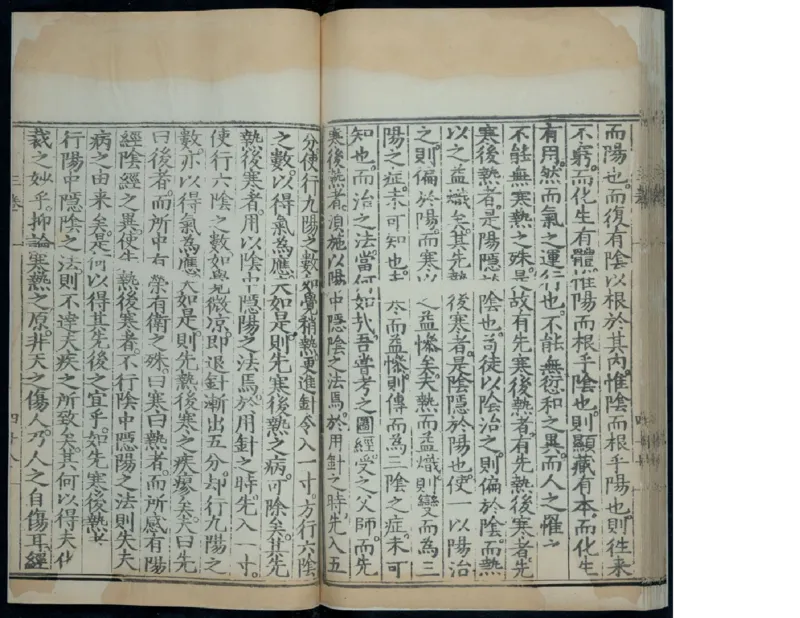 而陽也。而復有陰以根於其內。惟陰而根乎陽也。則往來
不窮。而化生有體。惟陽而根乎陰也。則顯藏有本。而化生
有用。然而氣之運行也。不能無愆和之異。而人之罹之
不能無寒熱之殊。是故有先寒後熱者。有先熱後寒者。先
寒後熱者。是陽隱陰也。苟徒以陰治之。則偏於陰而熱
以之益熾矣。其先熱後寒者。是陰隱於陽也。使一以陽治
之。則偏於陽。而寒以之益慘矣。夫熱而益熾。則變而為三
陽之症。未可知也。夫而益慘。則傳而為三陰之症。未可
知也。而治之法。當何如哉。吾嘗考之圖經。受之父師。而先
寒後熱者。須施以陽中隱陰之法焉。於用針之時。先入五
分。使行九陽之數。如覺稍熱。更進針令入一寸。方行六陰
之數。以得氣為應。夫如是。則先寒後熱之病可除矣。其先
熱後寒者。用以陰中隱陽之法焉。於用針之時。先入一寸。
使行六陰之數。如覺微凉。即退針漸出五分。却行九陽之
數。亦以得氣為應。夫如是。則先熱後寒之疾瘳矣。夫曰先
曰後者。而所中有榮有衛之殊。曰寒曰熱者。而所感有陽
經陰經之異。使先熱後寒者。不行陰中隱陽之法。則失夫
病之由來矣。是何以得其先後之宜乎。如先寒後熱者
行陽中隱陰之法。則不達夫疾之所致矣。其何以得夫化
裁之妙乎。抑論寒熱之原。非天之傷人。乃人之自傷耳。經
三卷 四十八